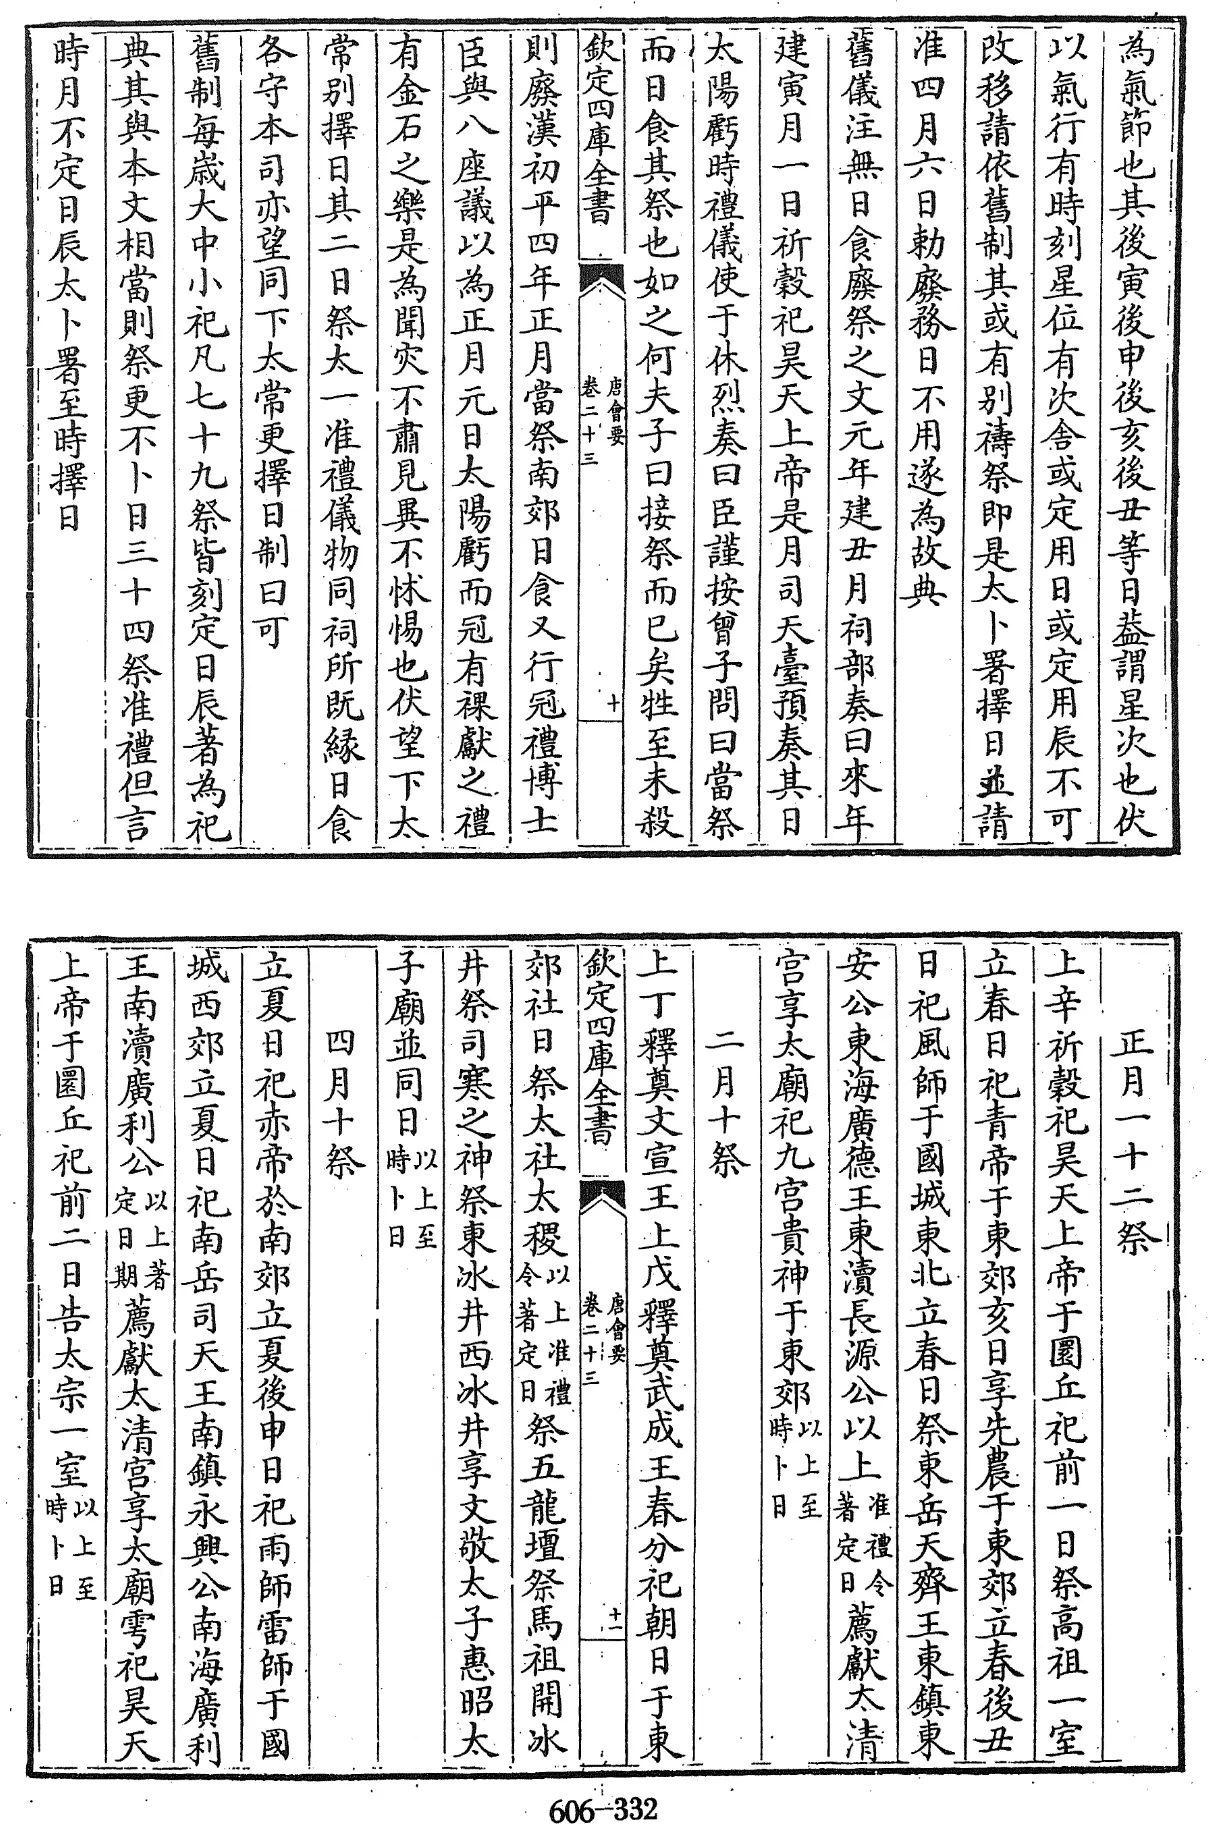 為氣節也其後寅後申後亥後丑等日葢謂星次也伏
以氣行有時刻星位有次舍或定用日或定用辰不可
改移請依舊制其或有别禱祭即是太卜署擇日並請
准四月六日勅廢務日不用遂為故典
舊儀注無日食廢祭之文元年建丑月祠部奏曰來年
建寅月一日祈穀祀昊天上帝是月司天臺預奏其日
太陽虧時禮儀使于休烈奏曰臣謹按曾子問曰當祭
而日食其祭也如之何夫子曰接祭而已矣牲至未殺
欽定四庫全書 唐會要 卷二十三 十
則廢漢初平四年正月當祭南郊日食又行冠禮博士
臣與八座議以為正月元日太陽虧而冠有祼獻之禮
有金石之樂是為聞灾不肅見異不怵惕也伏望下太
常别擇日其二日祭太一准禮儀物同祠所既縁日食
各守本司亦望同下太常更擇日制曰可
舊制每嵗大中小祀凡七十九祭皆刻定日辰著為祀
典其與本文相當則祭更不卜日三十四祭准禮但言
時月不定日辰太卜署至時擇日
正月一十二祭
上辛祈穀祀昊天上帝于圜丘祀前一日祭高祖一室
立春日祀青帝于東郊亥日享先農于東郊立春後丑
日祀風師于國城東北立春日祭東岳天齊王東鎮東
安公東海廣德王東瀆長源公以上准禮令著定日薦獻太清
宫享太廟祀九宫貴神于東郊以上至時卜日
二月十祭
上丁釋奠文宣王上戊釋奠武成王春分祀朝日于東
欽定四庫全書 唐會要 卷二十三 十一
郊社日祭太社太稷以上准禮令著定日祭五龍壇祭馬祖開冰
井祭司寒之神祭東冰井西冰井享文敬太子惠昭太
子廟並同日以上至時卜日
四月十祭
立夏日祀赤帝於南郊立夏後申日祀雨師雷師于國
城西郊立夏日祀南岳司天王南鎮永興公南海廣利
王南瀆廣利公以上著定日期薦獻太清宫享太廟雩祀昊天
上帝于圜丘祀前二日告太宗一室以上至時卜日
606-332